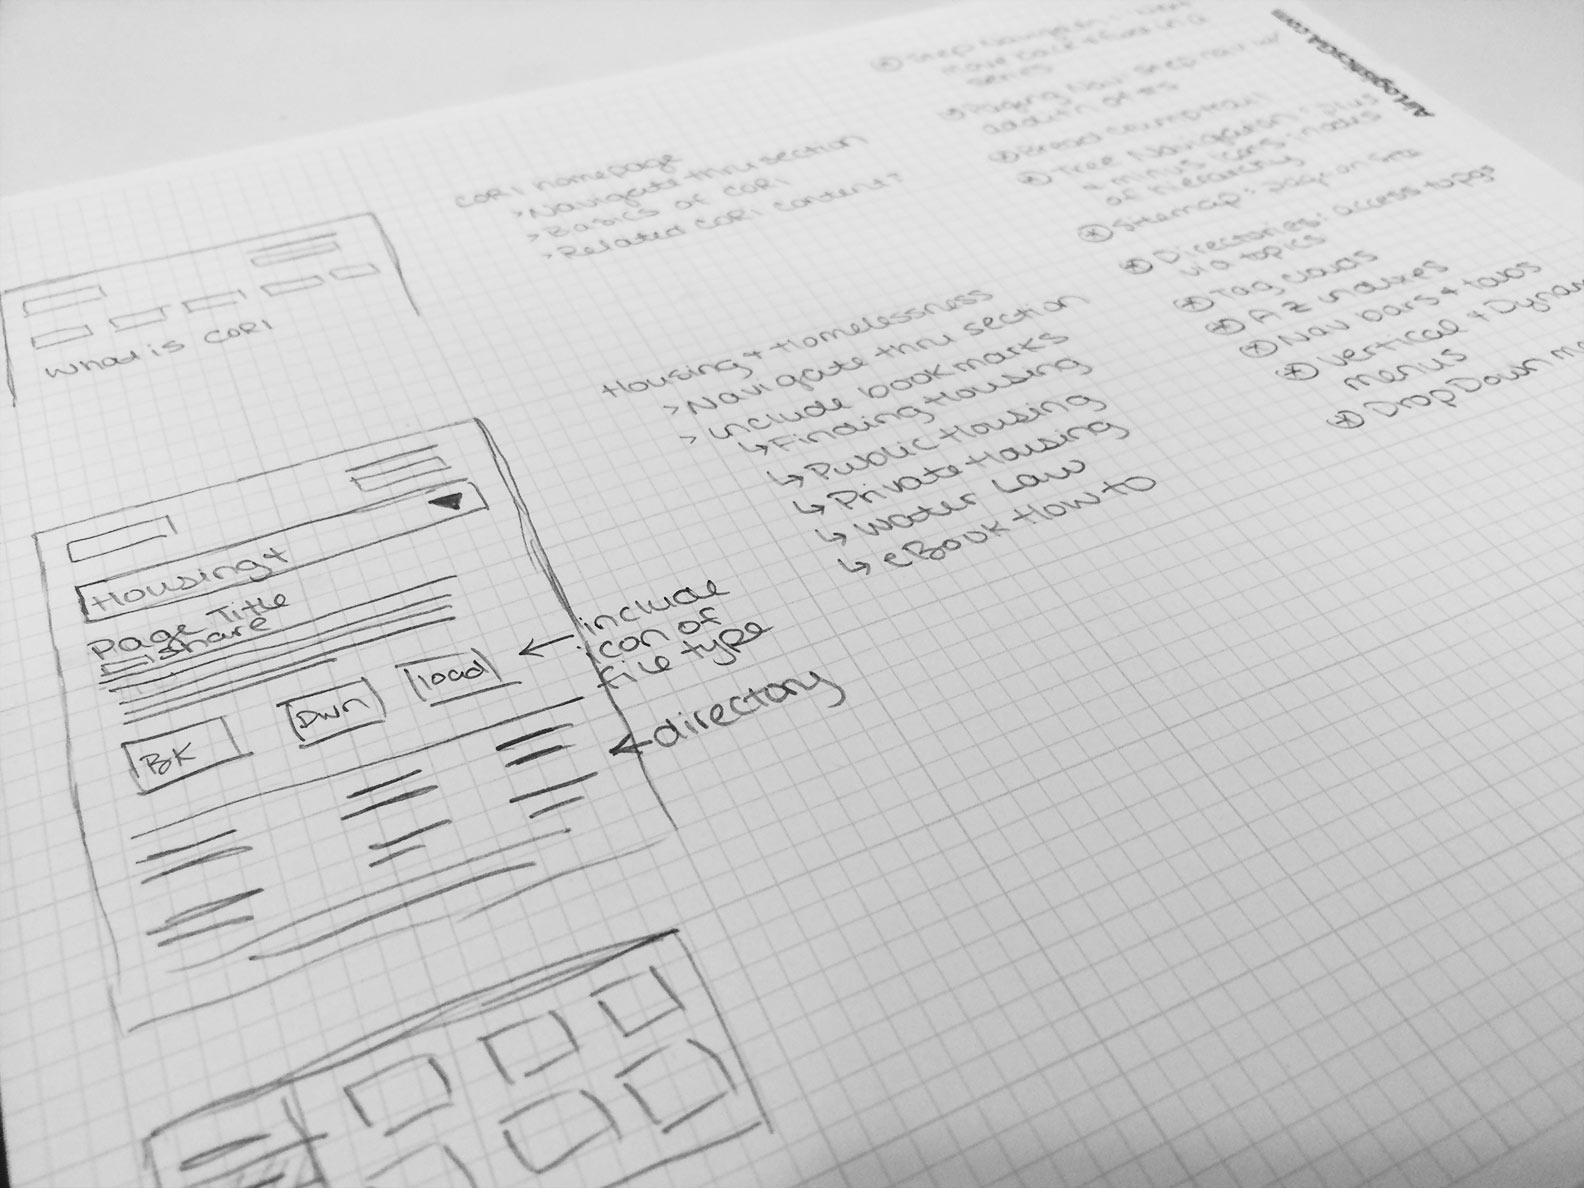 What is CORI
CORI homepage
>Navigate thru section
>Basics of CORI
>Related CORI content?
Housing + Homelessness
>Navigate thru section
>include bookmarks
↳Finding Housing
↳Public Housing
↳Private Housing
↳Water Law
↳eBook How to
Housing+
Page Title
Share
BK
Dwn
load
include
icon of
file type
directory
Step Navigation:
move back + forth in a
series
Paging Nav: Step nav w/
addit'n of #s
Bread crump trail
Tree Navigation: plus
+ minus icons: nodes
of hierarchy
Sitemap: page on site
Directories: access to pgs
via topics
Tag clouds
A-Z indexes
Nav bars + tabs
Vertical + Dynam
menus
DropDown me